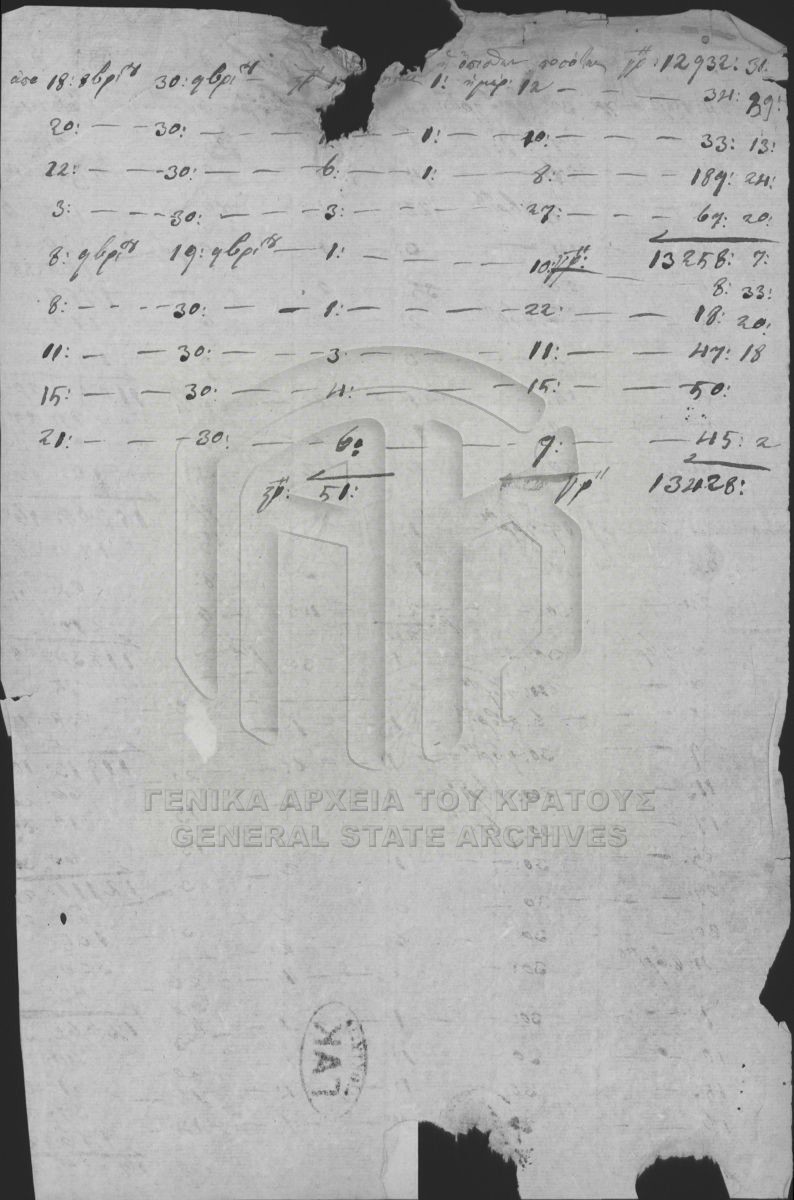 ἡ ὄπισθεν ποσότης γρ: 12932: 31
ἀπὸ 18: 8βρίου 30: 9βρίου 1: ἡμέρ: 12 — 34: 39:
20: — 30: — 1: — 10: — 33: 13:
22: — 30: — 6: — 1: — 8: — 189: 24:
3: — 30: — 3: — 27: — 67: 20:
8: 9βρίου 19: 9βρίου — 1: — 10: γρ: 13258: 7:
8: 33:
8: — 30: — 1: — 22: — 18: 20:
11: — 30: — 3: — 11: — 47: 18
15: — 30: — 4: — 15: — 50:
21: — 30: — 6: — 9: — 45: 2
γρ: 51: γρ 13428:
ΓΕΝΙΚΑ ΑΡΧΕΙΑ ΤΟΥ ΚΡΑΤΟΥΣ
GENERAL STATE ARCHIVES
ΓΑΚ